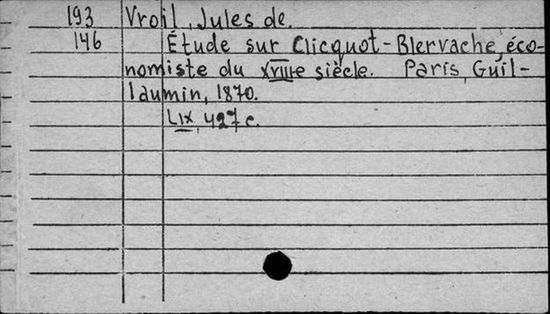 193 Vroil, Jules de.
146 Étude sur Clicquot-Blervache, éco-
nomiste du XVIIIe siècle. Paris, Guil-
laumin, 1870.
LIX, 427 c.